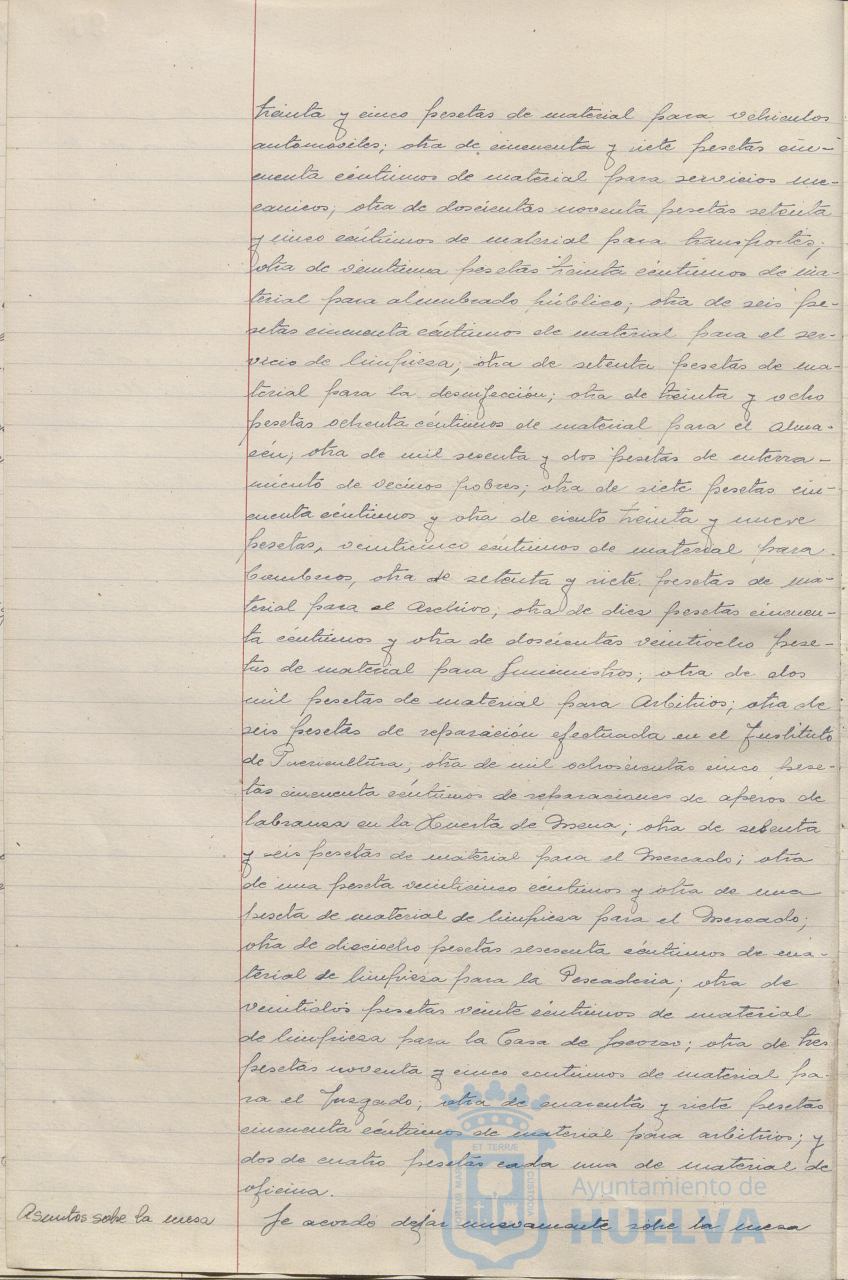 treinta y cinco pesetas de material para vehiculos
automóviles; otra de cincuenta y siete pesetas cin-
cuenta céntimos de material para servicios me-
canicos; otra de doscientas noventa pesetas setenta
y cinco céntimos de material para transportes;
otra de veintiuna pesetas treinta céntimos de ma-
terial para alumbrado público; otra de seis pe-
setas cincuenta céntimos de material para el ser-
vicio de limpiesa; otra de setenta pesetas de ma-
terial para la desinfección; otra de treinta y ocho
pesetas ochenta céntimos de material para el Alma-
cén; otra de mil sesenta y dos pesetas de enterra-
miento de vecinos pobres; otra de siete pesetas cin-
cuenta céntimos y otra de ciento treinta y nueve
pesetas, veinticinco céntimos de material para
Caminos, otra de setenta y siete pesetas de ma-
terial para el Archivo; otra de diez pesetas cincuen-
ta céntimos y otra de doscientas veintiocho pese-
tas de material para Suministros; otra de dos
mil pesetas de material para Arbitrios; otra de
seis pesetas de reparación efectuada en el Instituto
de Puericultura; otra de mil ochoscientas cinco pese-
tas cincuenta céntimos de reparaciones de aperos de
labransa en la Huerta de Mena; otra de setenta
y seis pesetas de material para el Mercado; otra
de una peseta veinticinco céntimos y otra de una
peseta de material de limpiesa para el Mercado;
otra de dieciocho pesetas sesenta céntimos de ma-
terial de limpiesa para la Pescaderia; otra de
veintidos pesetas veinte céntimos de material
de limpiesa para la Casa de Socorro; otra de tres
pesetas noventa y cinco centimos de material pa-
ra el Juzgado; otra de cuarenta y siete pesetas
cincuenta céntimos de material para arbitrios; y
dos de cuatro pesetas cada una de material de
oficina.
Asuntos sobre la mesa Se acordó dejar nuevamente sobre la mesa
ET TERRÆ
PORTUS MARIS
CUSTODIA
Ayuntamiento de
HUELVA